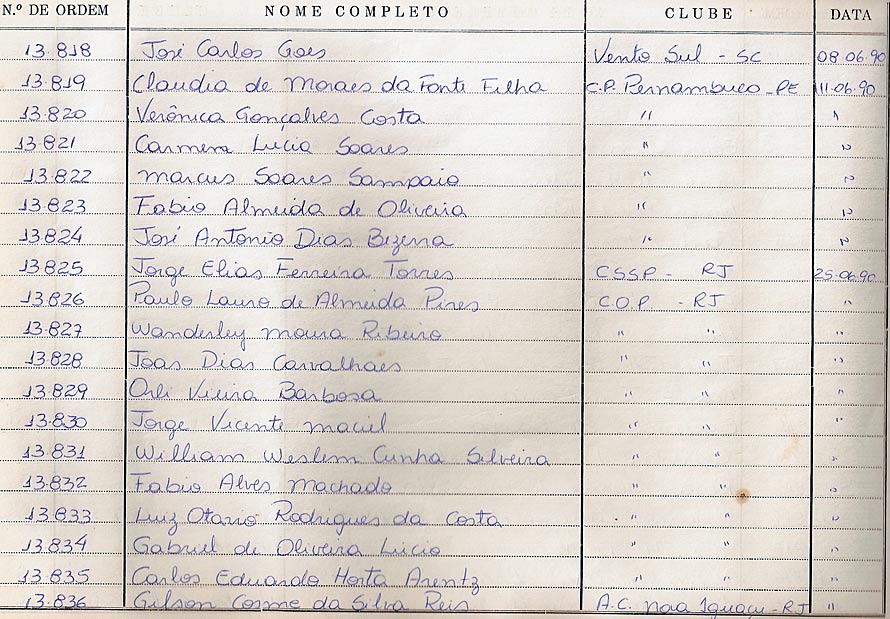 N.º DE ORDEM NOME COMPLETO CLUBE DATA
13.818 José Carlos Goes Vento Sul - SC 08.06.90
13.819 Claudia de Moraes da Fonte Filha C.P. Pernambuco - PE 11.06.90
13.820 Verônica Gonçalves Costa " "
13.821 Carmem Lucia Soares " "
13.822 Marcus Soares Sampaio " "
13.823 Fabio Almeida de Oliveira " "
13.824 José Antonio Dias Bezerra " "
13.825 Jorge Elias Ferreira Torres CSSP - RJ 25.06.90
13.826 Paulo Lauro de Almeida Pires C.O.P. - RJ "
13.827 Wanderley Moura Ribeiro " " "
13.828 Joas Dias Carvalhaes " " "
13.829 Orli Vieira Barbosa " " "
13.830 Jorge Vicente Maciel " " "
13.831 William Weslem Cunha Silveira " " "
13.832 Fabio Alves Machado " " "
13.833 Luiz Otavio Rodrigues da Costa " " "
13.834 Gabriel de Oliveira Lucio " " "
13.835 Carlos Eduardo Horta Arentz " " "
13.836 Gilson Cosme da Silva Reis A.C. Nova Iguaçu - RJ "